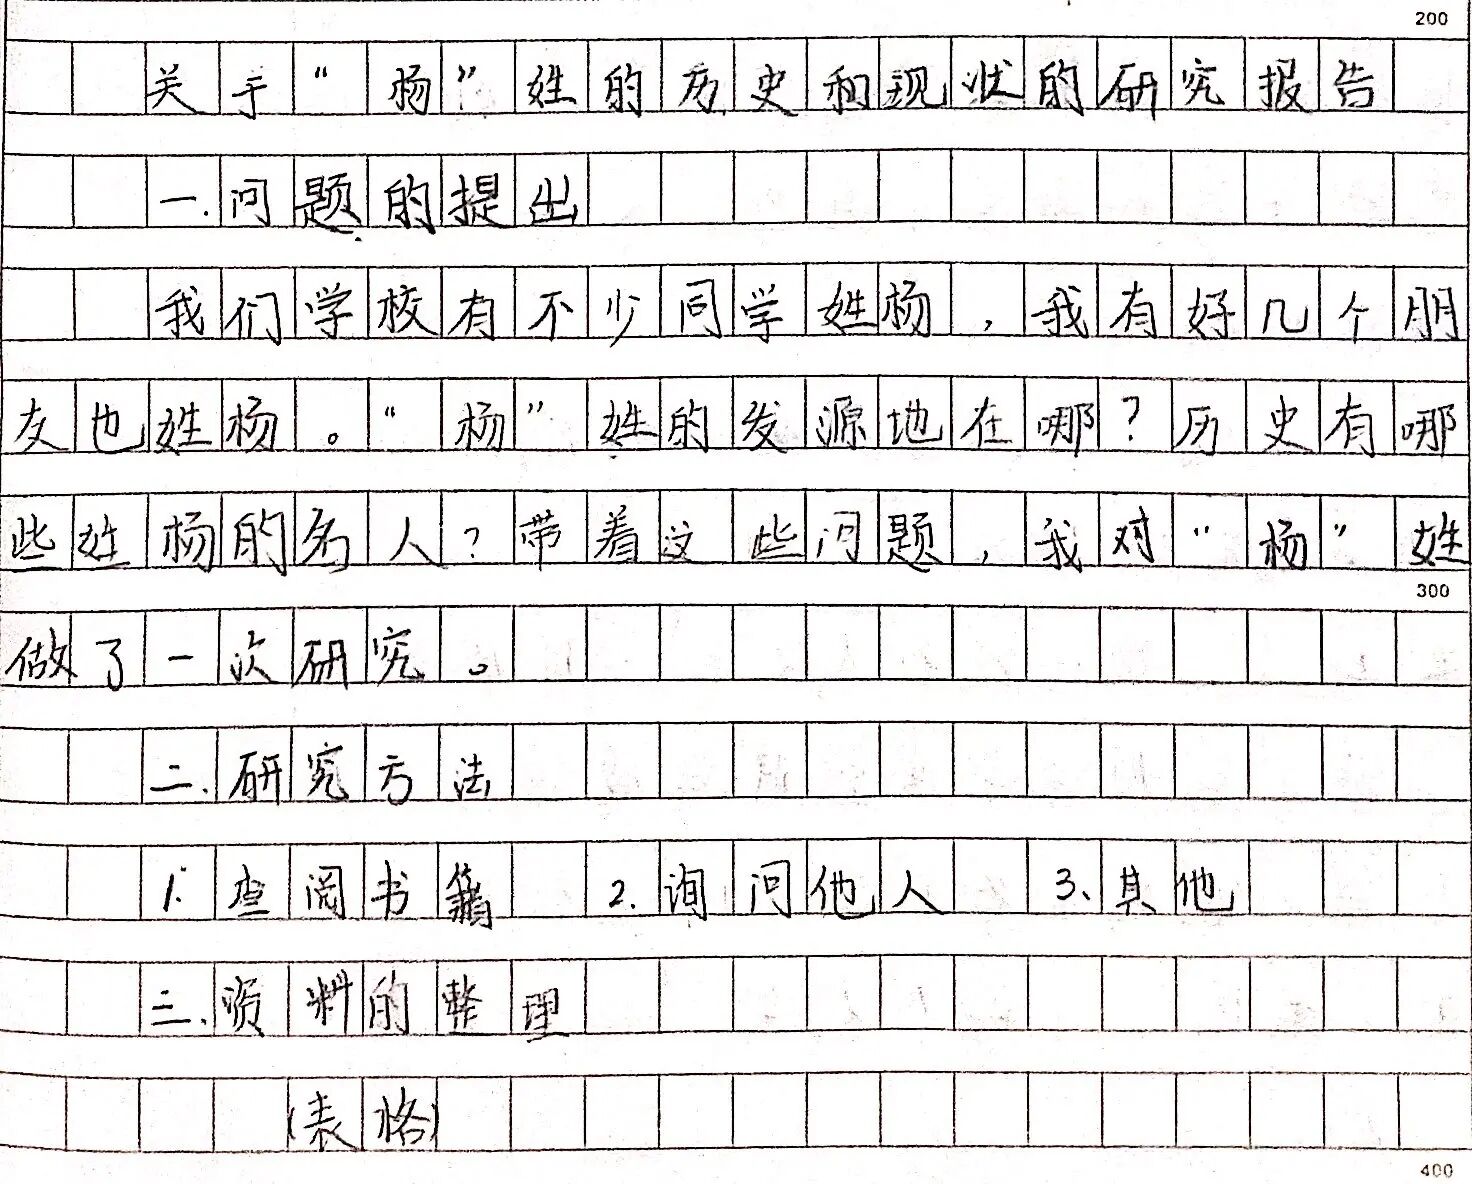 200
关于“杨”姓的历史和现状的研究报告
一.问题的提出
我们学校有不少同学姓杨，我有好几个朋
友也姓杨。“杨”姓的发源地在哪？历史有哪
些姓杨的名人？带着这些问题，我对“杨”姓
300
做了一次研究。
二.研究方法
1.查阅书籍 2.询问他人 3、其他
三.资料的整理
（表格）
400